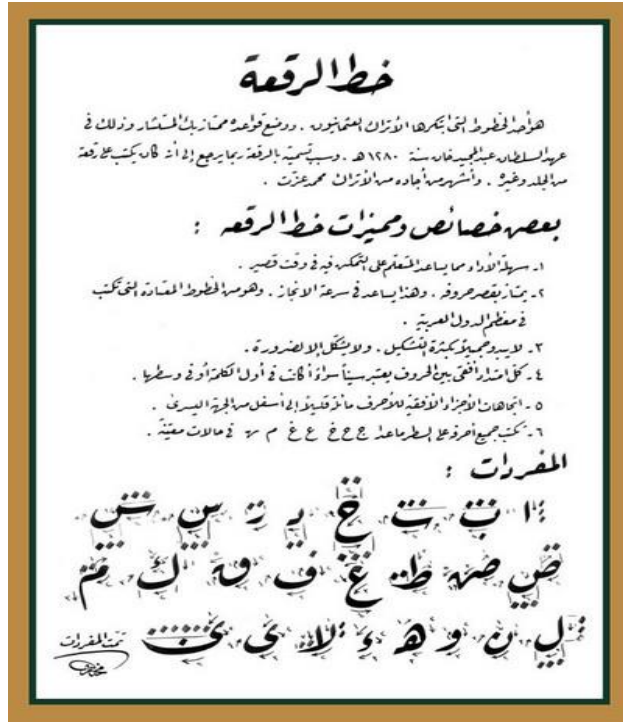 خط الرقعة
هو أحد الخطوط التى ابتكرها الأتراك العثمانيون . ووضع قواعده ممتاز بك المستشار وذلك فى
عهد السلطان عبد المجيد خان سنة ١٢٨٠ هـ . وسبب تسميته بالرقعة ربما يرجع إلى أنه كان يكتب على رقعة
من الجلد وغيره . وأشهر من أجاده من الأتراك محمد عزت .
بعض خصائص ومميزات خط الرقعه :
١- سهلة الأداء مما يساعد المتعلم على التمكن فيه فى وقت قصير .
٢- يمتاز بقصر حروفه . وهذا يساعد فى سرعة الانجاز . وهو من الخطوط المعتادة التى تكتب
فى معظم الدول العربية .
٣- لا يبدو جميلاً بكثرة التشكيل . ولا يشكّل إلا لضرورة .
٤- كل امتداد أفقى بين الحروف يعتبر سيناً سواءً أكانت فى أول الكلمة أو فى وسطها .
٥- اتجاهات الأجزاء الأفقية للأحرف مائلة قليلاً إلى أسفل من الجهة اليسرى .
٦- تكتب جميع أحرفه على السطر ماعدا ج ح خ ع غ م هـ فى حالات معينة .
المفردات :
ا ب ت خ د ر س ش
ض ص ط غ ف ق ك م
ل ن و هـ ء لا ى ئ
تمت المفردات